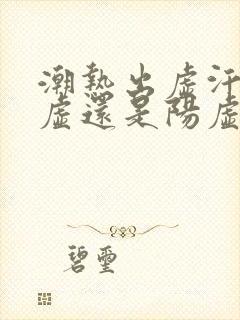 潮熱出虛汗
虛還是陽虛
碧璽